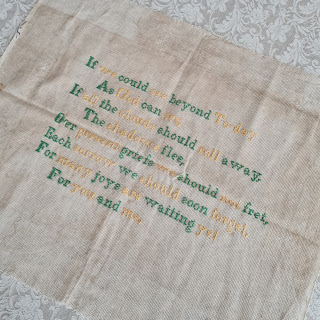 If we could see beyond To-day
As God can see,
If all the clouds should roll away,
The shadows flee,
Oer present griefs we should not fret,
Each sorrow we should soon forget,
For many joys are waiting yet
For you and me.